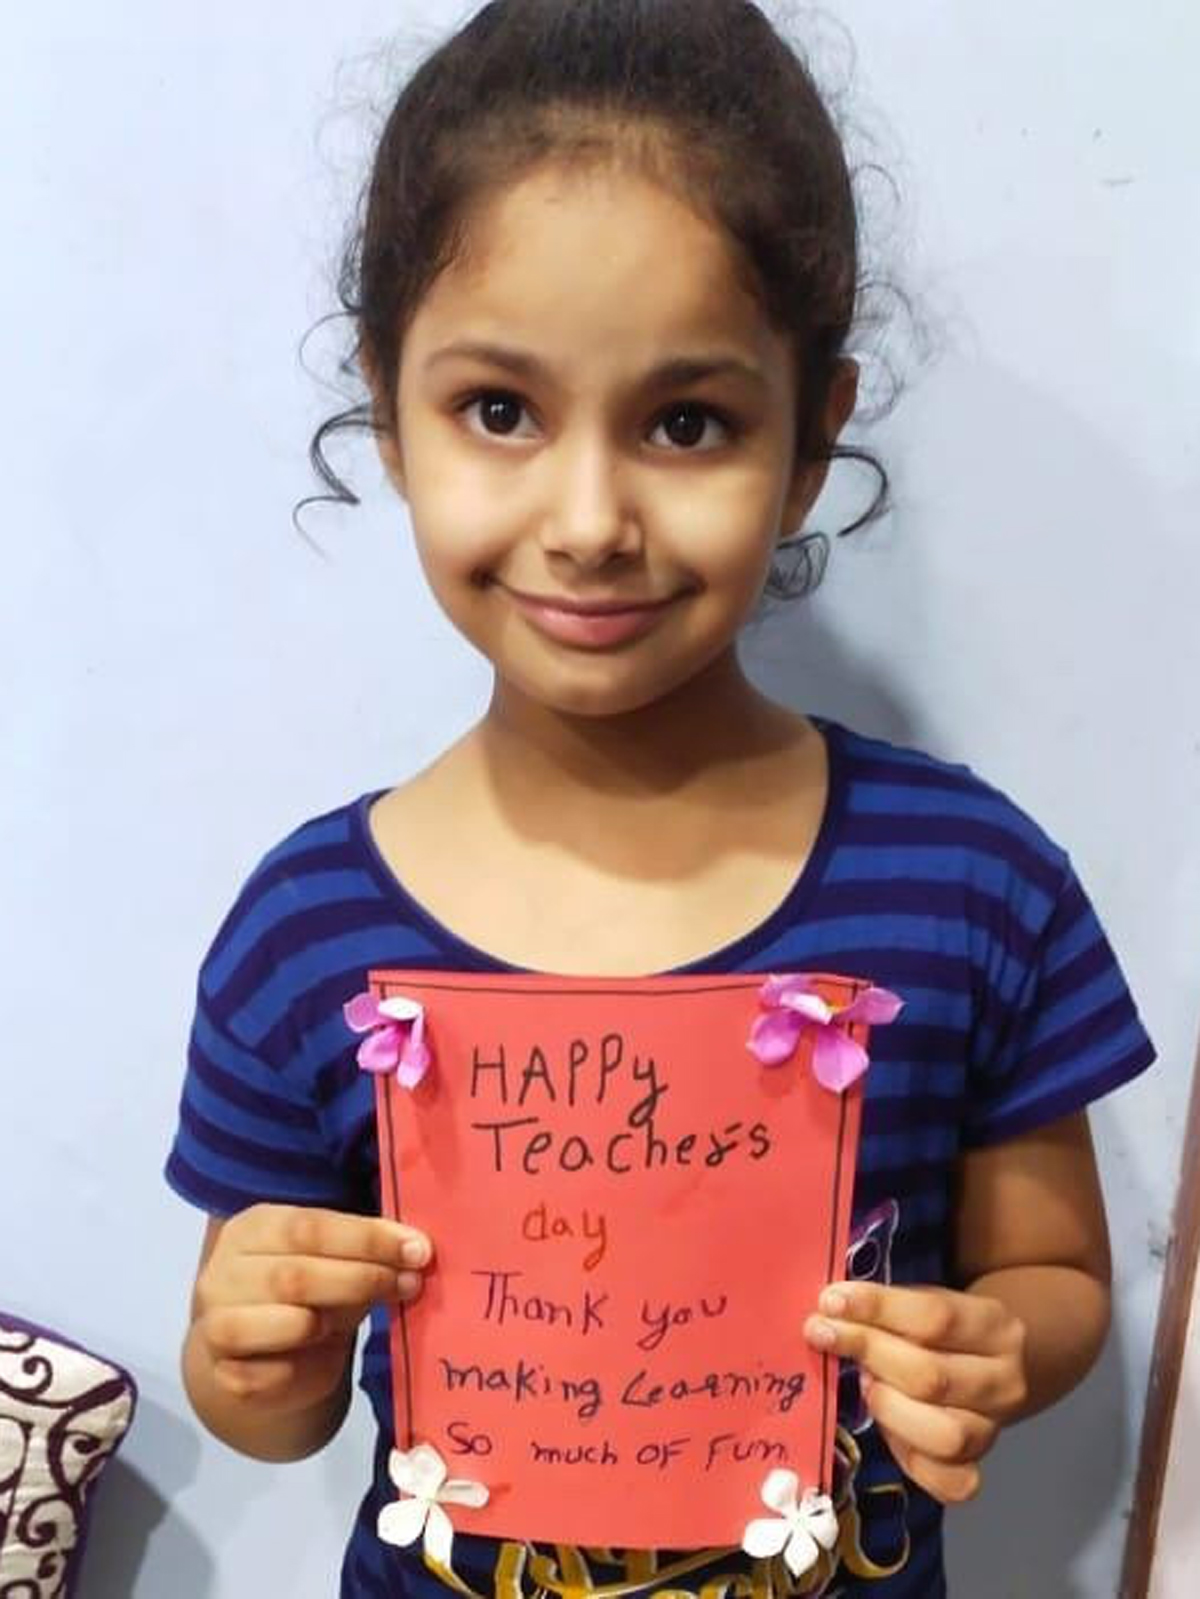 HAPPy
Teacher's
day
Thank you
making Learning
So much OF Fun